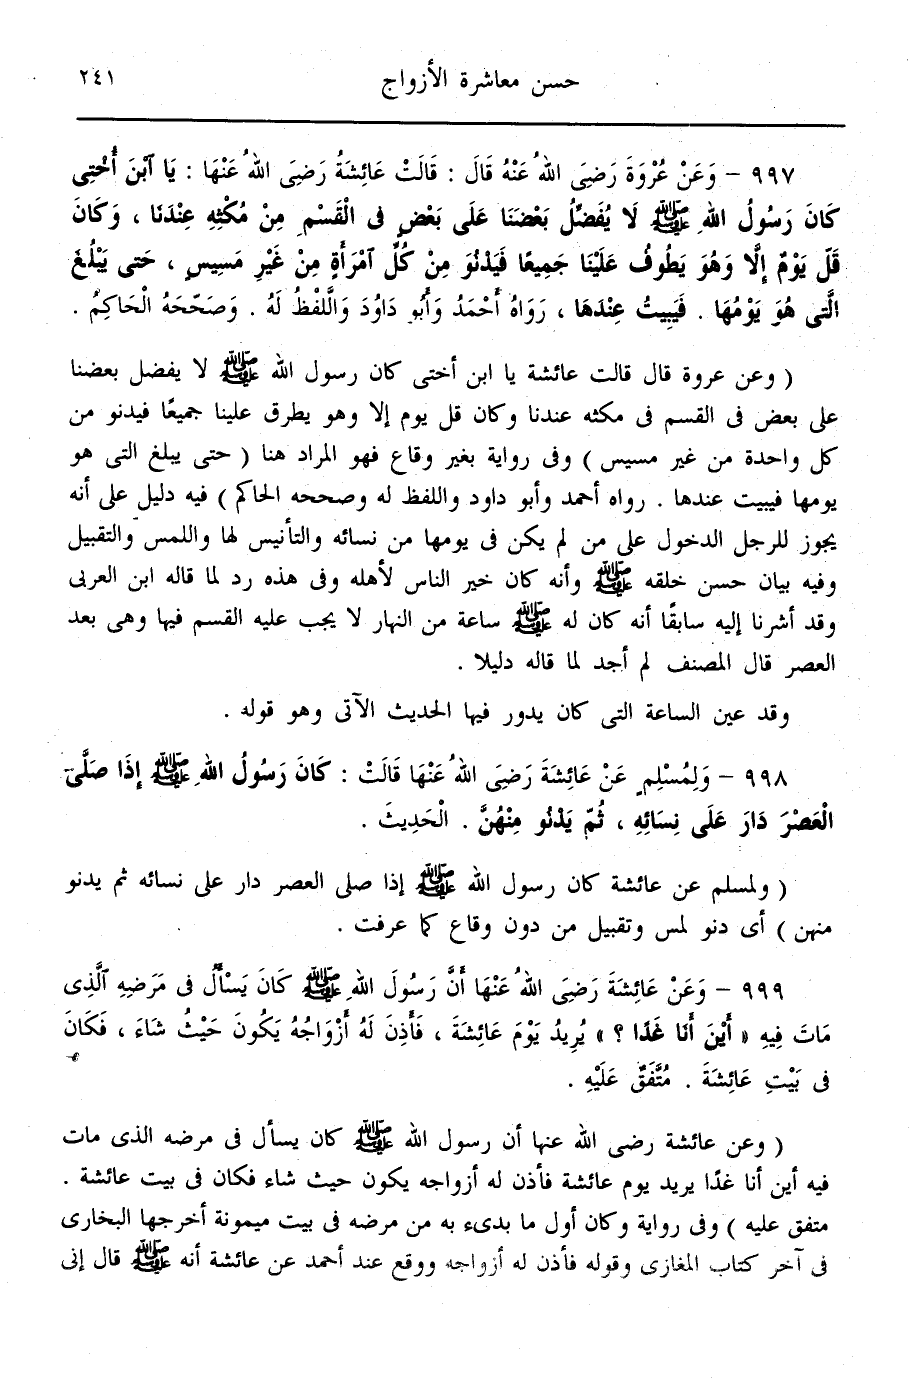 حسن معاشرة الأزواج ٢٤١
٩٩٧ – وَعَنْ عُرْوَةَ رَضِيَ اللهُ عَنْهُ قَالَ : قَالَتْ عَائِشَةُ رَضِيَ اللهُ عَنْهَا : يَا ٱبْنَ أُخْتِى
كَانَ رَسُولُ اللهِ ﷺ لَا يُفَضِّلُ بَعْضَنَا عَلَى بَعْضٍ فِى الْقَسْمِ مِنْ مُكْثِهِ عِنْدَنَا ، وَكَانَ
قَلَّ يَوْمٌ إِلَّا وَهُوَ يَطُوفُ عَلَيْنَا جَمِيعًا فَيَدْنُوَ مِنْ كُلِّ ٱمْرَأَةٍ مِنْ غَيْرِ مَسِيسٍ ، حَتى يَبْلُغَ
الَّتِى هُوَ يَوْمُهَا . فَيَبِيتُ عِنْدَهَا ، رَوَاهُ أَحْمَدُ وَأَبُو دَاوُدَ وَالَّلفْظُ لَهُ . وَصَحَّحَهُ الْحَاكِمُ .
( وعن عروة قال قالت عائشة يا ابن أختى كان رسول الله ﷺ لا يفضل بعضنا
على بعض فى القسم فى مكثه عندنا وكان قل يوم إلا وهو يطرق علينا جميعًا فيدنو من
كل واحدة من غير مسيس ) وفى رواية بغير وقاع فهو المراد هنا ( حتى يبلغ التى هو
يومها فيبيت عندها . رواه أحمد وأبو داود واللفظ له وصححه الحاكم ) فيه دليل على أنه
يجوز للرجل الدخول على من لم يكن فى يومها من نسائه والتأنيس لها واللمس والتقبيل
وفيه بيان حسن خلقه ﷺ وأنه كان خير الناس لأهله وفى هذه رد لما قاله ابن العربى
وقد أشرنا إليه سابقًا أنه كان له ﷺ ساعة من النهار لا يجب عليه القسم فيها وهى بعد
العصر قال المصنف لم أجد لما قاله دليلا .
وقد عين الساعة التى كان يدور فيها الحديث الآتى وهو قوله .
٩٩٨ – وَلِمُسْلِمٍ عَنْ عَائِشَةَ رَضِىَ اللهُ عَنْهَا قَالَتْ : كَانَ رَسُولُ اللهِ ﷺ إِذَا صَلَّىَ
الْعَصْرَ دَارَ عَلَى نِسَائِهِ ، ثُمّ يَدْنُو مِنْهُنَّ . الْحَدِيثَ .
( ولمسلم عن عائشة كان رسول الله ﷺ إذا صلى العصر دار على نسائه ثم يدنو
منهن ) أى دنو لمس وتقبيل من دون وقاع كما عرفت .
٩٩٩ – وَعَنْ عَائِشَةَ رَضِىَ اللهُ عَنْهَا أَنَّ رَسُولَ اللهِ ﷺ كَانَ يَسْأَلُ فى مَرَضِهِ ٱلَّذِى
مَاتَ فِيهِ « أَيْنَ أَنَا غَدًا ؟ » يُرِيدُ يَوْمَ عَائِشَةَ ، فَأَذِنَ لَهُ أَزْوَاجُهُ يَكُونَ حَيْثُ شَاءَ ، فَكَانَ
فى بَيْتِ عَائِشَةَ . مُتَّفَقٌ عَلَيْهِ .
( وعن عائشة رضى الله عنها أن رسول الله ﷺ كان يسأل فى مرضه الذى مات
فيه أين أنا غدًا يريد يوم عائشة فأذن له أزواجه يكون حيث شاء فكان فى بيت عائشة .
متفق عليه ) وفى رواية وكان أول ما بدىء به من مرضه فى بيت ميمونة أخرجها البخارى
فى آخر كتاب المغازى وقوله فأذن له أزواجه ووقع عند أحمد عن عائشة أنه ﷺ قال إنى